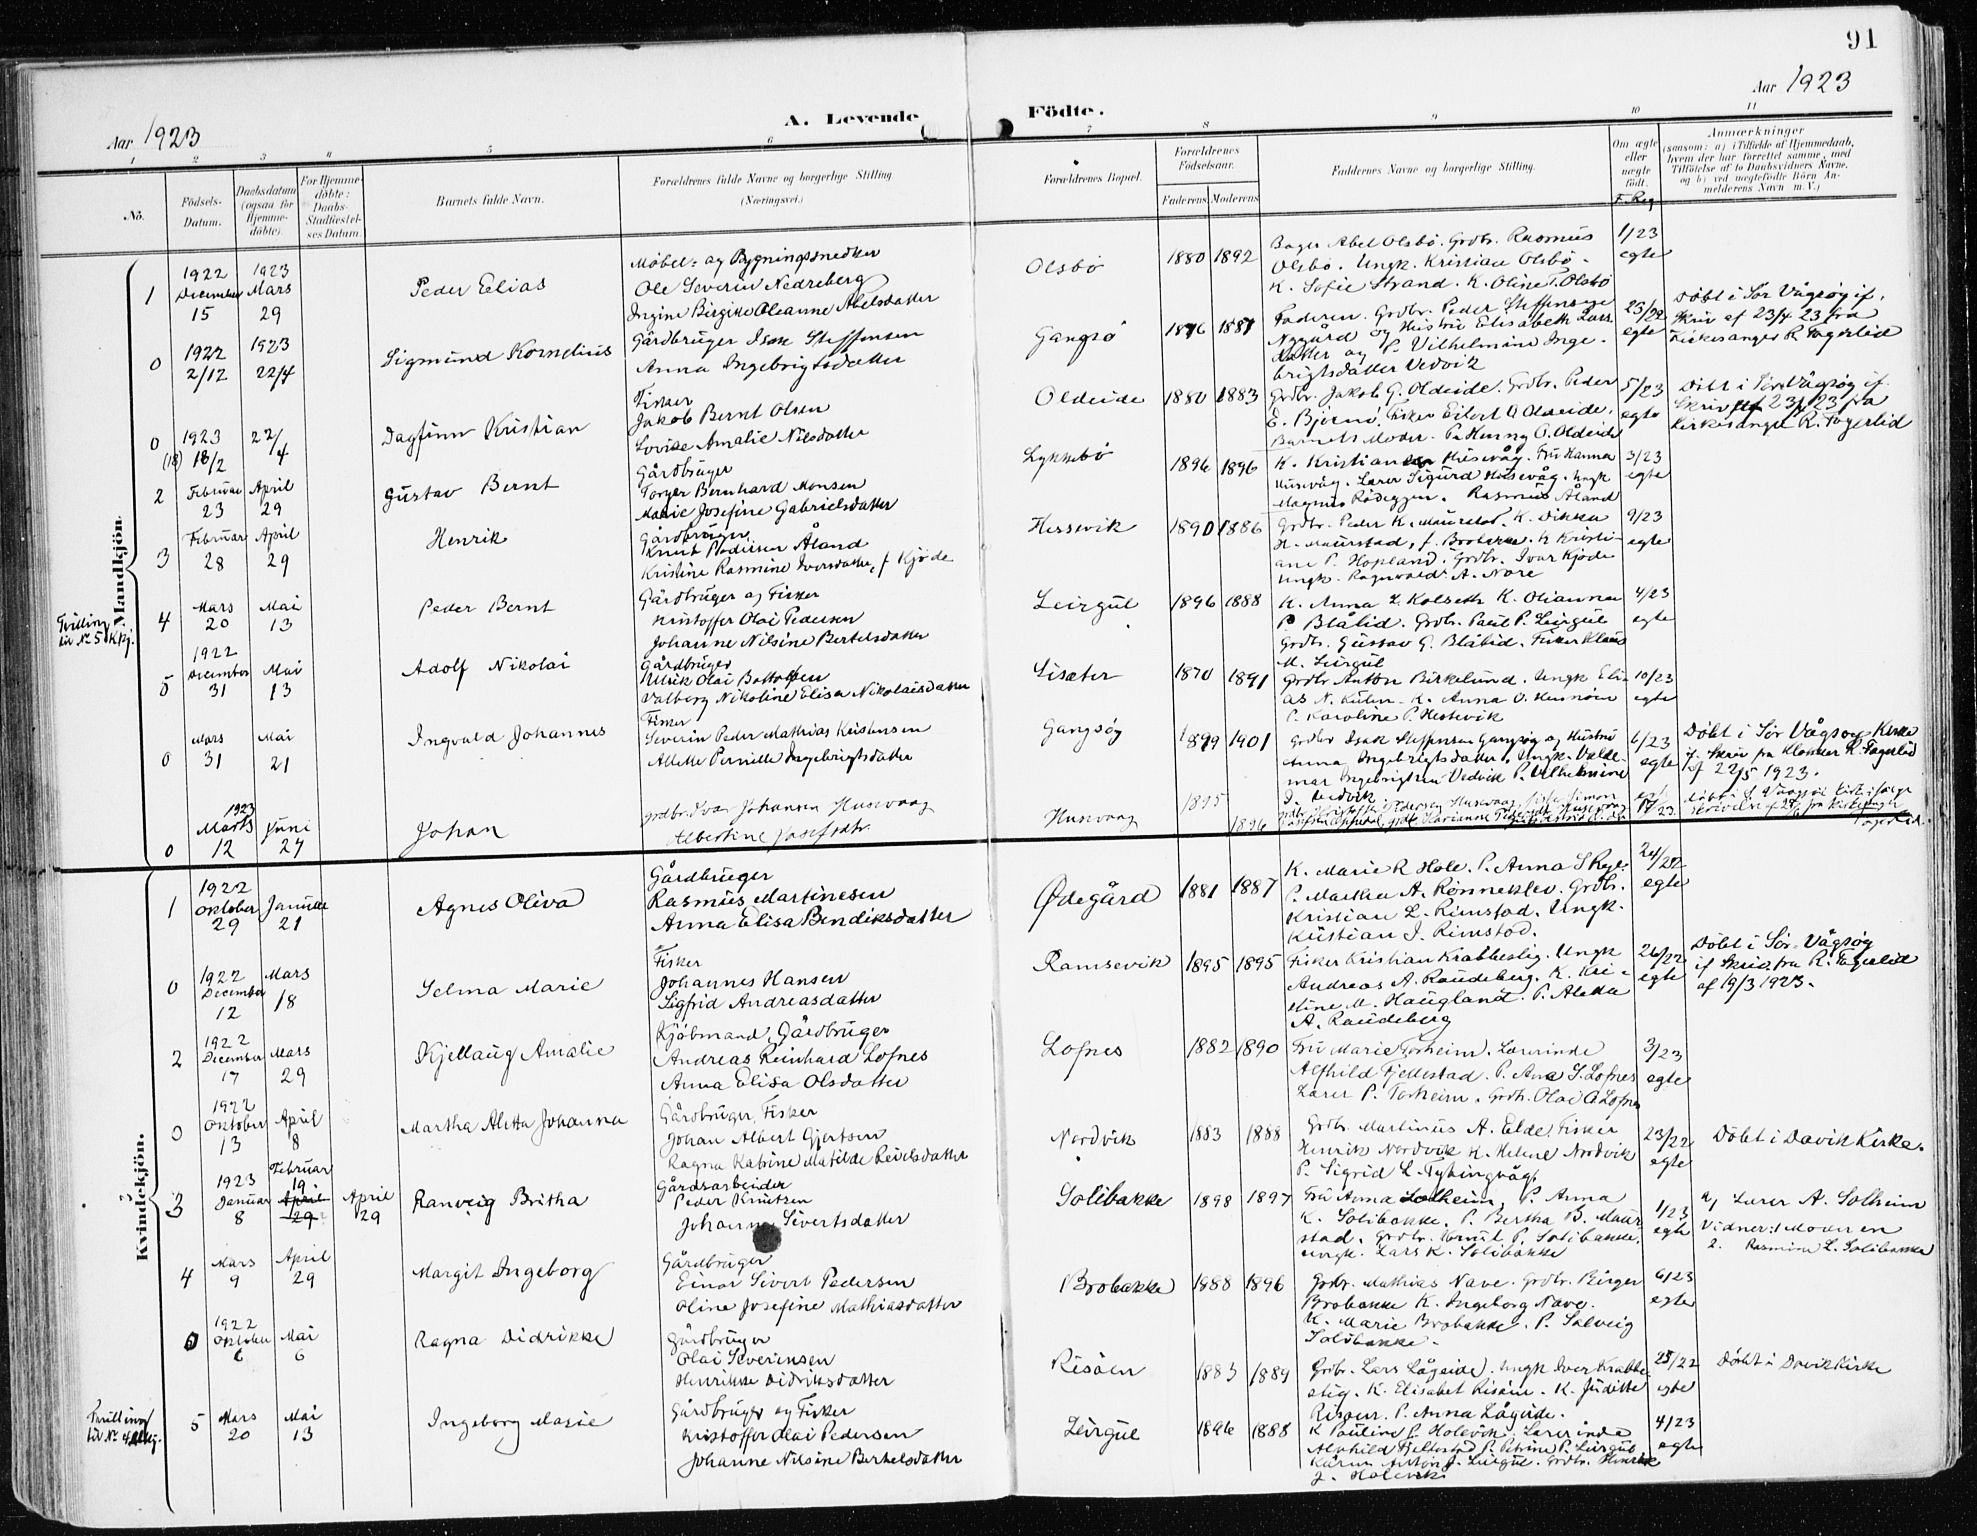 91
Aar 1923
A. Levende Födte.
Aar 1923
1 2 3 4 5 6 7 8 9 10 11
No.
Födsels-Datum.
Daabsdatum (ogsaa for Hjemme-döbte).
For Hjemme-döbte: Daabs-Stadfæstel-ses Datum.
Barnets fulde Navn.
Forældrenes fulde Navne og borgerlige Stilling. (Næringsvei.)
Forældrenes Bopæl.
Forældrenes Födselsaar.
Faderens. Moderens.
Faddernes Navne og borgerlige Stilling.
Om ægte eller uægte födt.
F. Reg
Anmærkninger
(saasom: a) i Tilfælde af Hjemmedaab,
hvem der har forrettet samme, med
Tilföielse af to Daabsvidners Navne.
og b) ved uægtefödte Börn An-
melderens Navn m. V.)
Mandkjön.
1 1922 December 15 1923 Mars 29 Peder Elias
Möbel- og Bygningssnedker
Ole Severin Nedreberg
Ingine Birgitte Oleanne Abelsdatter
Olsbö 1880 1892
Bager Abel Olsbö. Grdbr. Rasmus
Olsbö. Ungk. Kristian Olsbö.
K. Sofie Strand. K. Oline T. Olsbö
1/23 egte
0 1922 2/12 1923 22/4 Sigmund Kornelius
Gårdbruger Isak Steffensen
Anna Ingebrigtsdatter
Gangsö 1876 1887
Faderen. Grdbr. Peder Steffensen
Nygård og Hustru Elisabeth Lars
datter og P. Vilhelmine Inge-
brigtsdatter Vedvik
25/22 egte
Döbt i Sör Vågsöy if.
Skriv af 23/4 23 fra
Kirkesanger R. Fagerlid
0 (18) 1923 18/2 22/4 Dagfinn Kristian
Fisker
Jakob Bernt Olsen
Lovise Amalie Nilsdatter
Oldeide 1880 1883
Grdbr. Jakob G. Oldeide. Grdbr. Peder
E. Björnö. Fisker Eilert O Oldeide.
Barnets Moder. P. Henny O. Oldeide
5/23 egte
Döbt i Sör Vågsöy if.
Skriv af 23/4 23 fra
Kirkesanger R. Fagerlid
2 Februar 23 April 29 Gustav Bernt
Gårdbruger
Torger Bernhard Monsen
Marie Josefine Gabrielsdatter
Lykkebö 1896 1896
K. Kristian Husevåg. Fru Hanna
Husevåg. Lærer Sigurd Husevåg. Ungk
Magnus Rödeggen. Rasmus Åland
3/23 egte
3 Februar 28 April 29 Henrik
Gårdbruger
Knut Pedersen Åland
Kristine Rasmine Iversdatter, f Kjöde
Hessevik 1890 1886
Grdbr. Peder K. Maurstad. K. Dikka
H. Maurstad, f. Brobakke. K Kristi-
ane P. Hopland. Grdbr. Ivar Kjöde
Ungk. Ragnvald A. Nore
9/23 egte
Tvilling til No 5 Kkj.
4 Mars 20 Mai 13 Peder Bernt
Gårdbruger og Fisker
Kristoffer Olai Pedersen
Johanne Nilsine Bertelsdatter
Leirgul 1896 1888
K. Anna L Kolseth K. Olianna
P. Blålid. Grdbr. Paul P. Leirgul
Grdbr. Gustav G. Blålid. Fisker Klaus
M. Leirgul
4/23 egte
5 1922 December 31 Mai 13 Adolf Nikolai
Gårdbruger
Ulrik Olai Bottolfsen
Valborg Nikoline Elisa Nikolaisdatter
Lisæter 1870 1891
Grdbr Anton Birkelund. Ungk Eli-
as N. Kulen. K. Anna O. Hennöen
P. Karoline P. Hessevik
10/23 egte
0 Mars 31 Mai 21 Ingvald Johannes
Fisker
Severin Peder Mathias Kristensen
Alette Pernille Ingebrigtsdatter
Gangsöy 1899 1901
Grdbr Isak Steffensen Gangsöy og Hustru
Anna Ingebrigtsdatter. Ungk. Valde-
mar Ingebrigtsen Vedvik P. Vilhelmine
I. Vedvik
6/23 egte
Döbt i Sör Vågsöy Kirke
if. Skriv fra Klokker R. Fagerlid
af 22/5 1923.
0 1923 Marts 12 Juni 24 Johan
grdbr. Ivar Johansen Husevaag
Albertine Josefsdtr.
Husevaag 1895 1896
17/23
Kvindekjön.
1 1922 Oktober 29 Januar 21 Agnes Oliva
Gårdbruger
Rasmus Martinesen
Anna Elisa Bendiksdatter
Ödegård 1881 1887
K. Marie R Hole. P. Anna S Ryg.
P. Marthea A. Rönneklev. Grdbr.
Kristian L. Rimstad. Ungk.
Kristian J. Rimstad.
24/22 egte
0 1922 December 12 Mars 18 Selma Marie
Fisker
Johannes Hansen
Sigfrid Andreasdatter
Ramsevik 1895 1895
Fisker Kristian Krabbestig. Ungk
Andreas A. Raudeberg. K. Kri-
stine M. Haugland. P. Aletta
A. Raudeberg
26/22 egte
Döbt i Sör-Vågsöy
if Skriv fra R. Fagerlid
af 19/3 1923.
2 1922 December 17 Mars 29 Kjellaug Amalie
Kjöbmand, Gårdbruger
Andreas Reinhard Lofnes
Anna Elisa Olsdatter
Lofnes 1882 1890
Fru Marie Torheim. Lærerinde
Alfhild Fjellestad. P. Ana S. Lofnes
Lærer P. Torheim. Grdbr. Olai A Lofnes
3/23 egte
0 1922 Oktober 13 April 8 Martha Aletta Johanna
Gårdbruger, Fisker
Johan Albert Gjertsen
Ragna Katrine Matilde Reielsdatter
Nordvik 1883 1888
Grdbr. Martinus A. Elde. Fisker
Henrik Nordvik K. Helene Nordvik
P. Sigrid L. Tytingvåg
23/22 egte
Döbt i Davik Kirke.
3 1923 Januar 8 Februar 19 April 29 April 29 Ranveig Britha
Gårdsarbeider
Peder Knutsen
Johanna Sivertsdatter
Solibakke 1898 1897
Fru Anna Solheim, P. Anna
K. Solibakke. P. Bertha B. Maur
stad. Grdbr. Knut P. Solibakke.
Ungk. Lars K. Solibakke
1/23 egte
a) Lærer A. Solheim
Vidner: 1 Moderen
2. Rasmine L. Solibakke
4 Mars 9 April 29 Margit Ingeborg
Gårdbruger
Einar Sivert Pedersen
Oline Josefine Mathiasdatter
Brobakke 1888 1896
Grdbr. Mathias Nave. Grdbr. Birger
Brobakke K. Ingeborg Nave.
K. Marie Brobakke. P. Solveig
Solibakke.
6/23 egte
0 1922 Oktober 6 Mai 6 Ragna Didrikke
Gårdbruger
Olai Severinsen
Henrikke Didriksdatter
Risöen 1883 1889
Grdbr. Lars Lågeide. Ungk Iver Krabbe-
stig. K. Elisabet Risöen. K. Juditte
Risöen. P. Anna Lågeide.
25/22 egte
Döbt i Davik Kirke
Tvilling til No 4 Mkj.
5 Mars 20 Mai 13 Ingeborg Marie
Gårdbruger og Fisker
Kristoffer Olai Pedersen
Johanne Nilsine Bertelsdatter
Leirgul 1896 1888
K Pauline P. Holevik. Lærerinde
Alvhild Fjellestad P. Petrine P. Leirgul
Anton J. Leirgul. Grdbr. Henrik
J. Holevik
4/23 egte